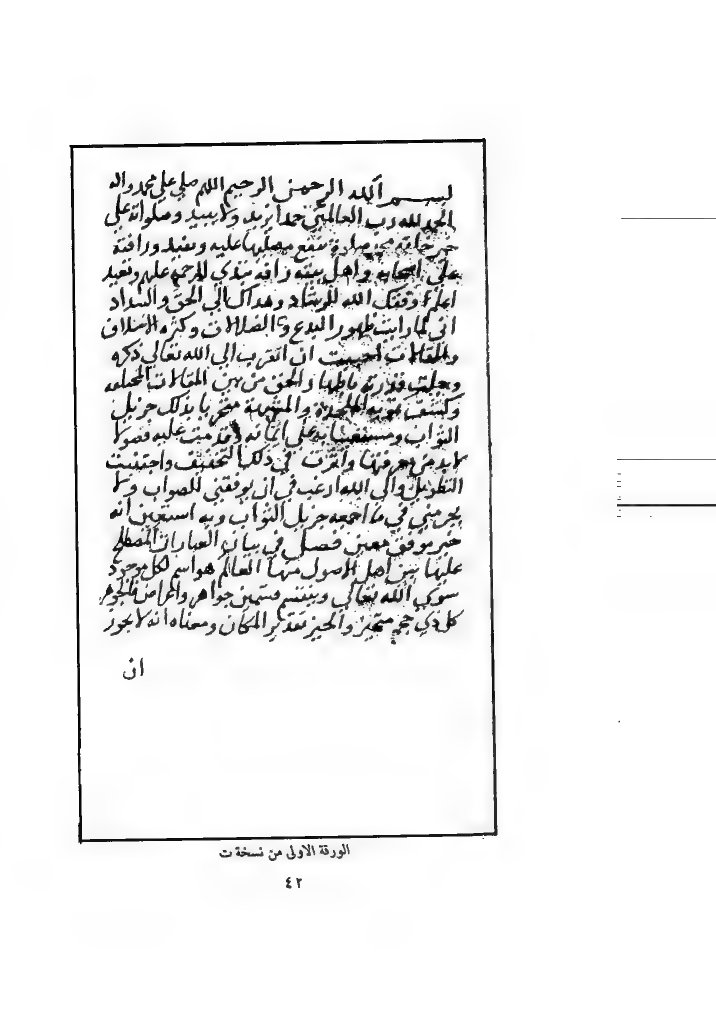 بسم الله الرحمن الرحيم اللهم صلي علي محمد واله
الحمد لله رب العالمين حمدا يزيد ولا يبيد وصلواته علي
خير خلقه محمد صلاة تنفع مصليها عليه وتفيد ورافة
علي اصحابه واهل بيته رافة
اعلم وفقك الله للرشاد وهداك الي الحق والسداد
اني لما رايت ظهور البدع والضلالات وكثرة الاختلاف
والمقالات احببت ان اتقرب الي الله تعالي ذكره
باظهار الحق من بين المقالات المختلفه
وكشف تمويه الملحدة والمشبهة متحريا بذلك جزيل
الثواب ومستعينا به علي اتمامه وقدمت عليه فصولا
لابد من معرفتها في ذلك التخفيف واجتنبت
التطويل والي الله ارغب في ان يوفقني للصواب ولا
يحرمني في ما اجمعه جزيل الثواب وبه استعين انه
خير موفق معين فصل في بيان العبارات المصطلح
عليها بين اهل الاصول منها العالم هو اسم لكل موجود
سوي الله تعالي وينقسم قسمين جواهر واعراض فالجوهر
كل ذي حجم متحيز والحيز تقدير المكان ومعناه انه لا يجوز
ان
الورقة الاولى من نسخة ت
٤٢